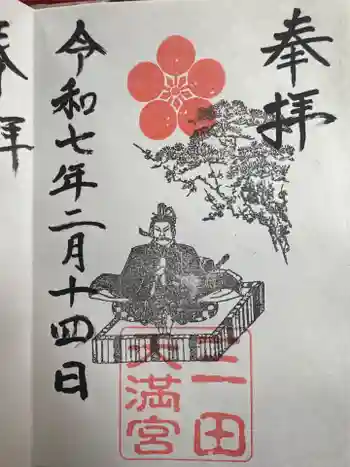 奉拝
三田
天満宮
令和七年二月十四日
奉拝